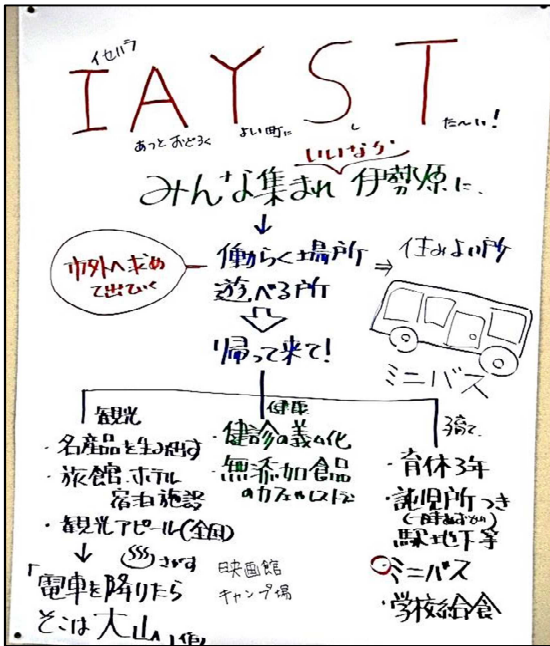 イセハラ
IAYST
あっとおどろく よい町に し た~い!
いいなか
みんな集まれ 伊勢原に、
↓
市外へ求め
て出ていく
働らく場所 ⇒ 住みよい所
遊べる所
帰って来て!
ミニバス
観光
・名産品を生み出す
・旅館、ホテル
宿泊施設
・観光アピール(全国)
↓ ♨さがす
「電車を降りたら
そこは大山
映画館
キャンプ場
健康
・健診の義ム化
・無添加食品
のカフェやレストラン
子育て
・育休3年
・託児所つき
(一時あずかり)
駅地下等
ミニバス
・学校給食